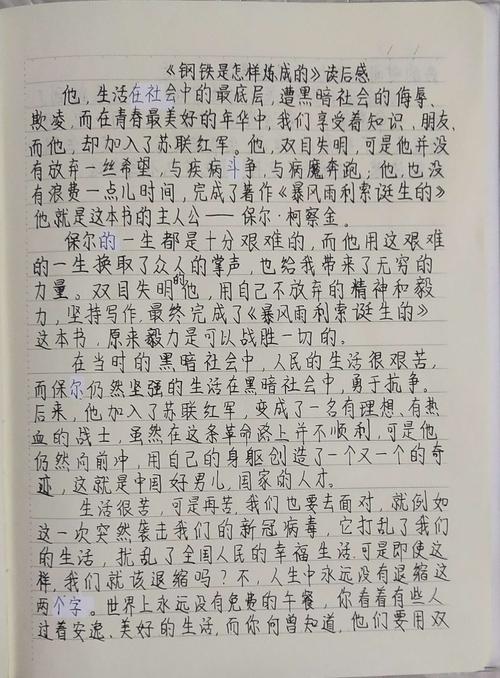 《钢铁是怎样炼成的》读后感
他，生活在社会中的最底层，遭黑暗社会的侮辱、
欺凌，而在青春最美好的年华中，我们享受着知识、朋友，
而他，却加入了苏联红军。他，双目失明，可是他并没
有放弃一丝希望，与疾病斗争，与病魔奔跑；他，也没
有浪费一点儿时间，完成了著作《暴风雨利索诞生的》
他就是这本书的主人公——保尔·柯察金。
保尔的一生都是十分艰难的，而他用这艰难
的一生换取了众人的掌声，也给我带来了无穷的
力量。双目失明的他，用自己不放弃的精神和毅
力，坚持写作，最终完成了《暴风雨利索诞生的》
这本书，原来毅力是可以战胜一切的。
在当时的黑暗社会中，人民的生活很艰苦，
而保尔仍然坚强的生活在黑暗社会中，勇于抗争。
后来，他加入了苏联红军，变成了一名有理想、有热
血的战士，虽然在这条革命路上并不顺利，可是他
仍然向前冲，用自己的身躯创造了一个又一个的奇
迹，这就是中国好男儿，国家的人才。
生活很苦，可是再苦，我们也要去面对，就例如
这一次突然袭击我们的新冠病毒，它打乱了我们
的生活，扰乱了全国人民的幸福生活.可是即使这
样，我们就该退缩吗？不，人生中永远没有退缩这
两个字。世界上永远没有免费的午餐，你看着有些人
过着安逸、美好的生活，而你何曾知道，他们要用双